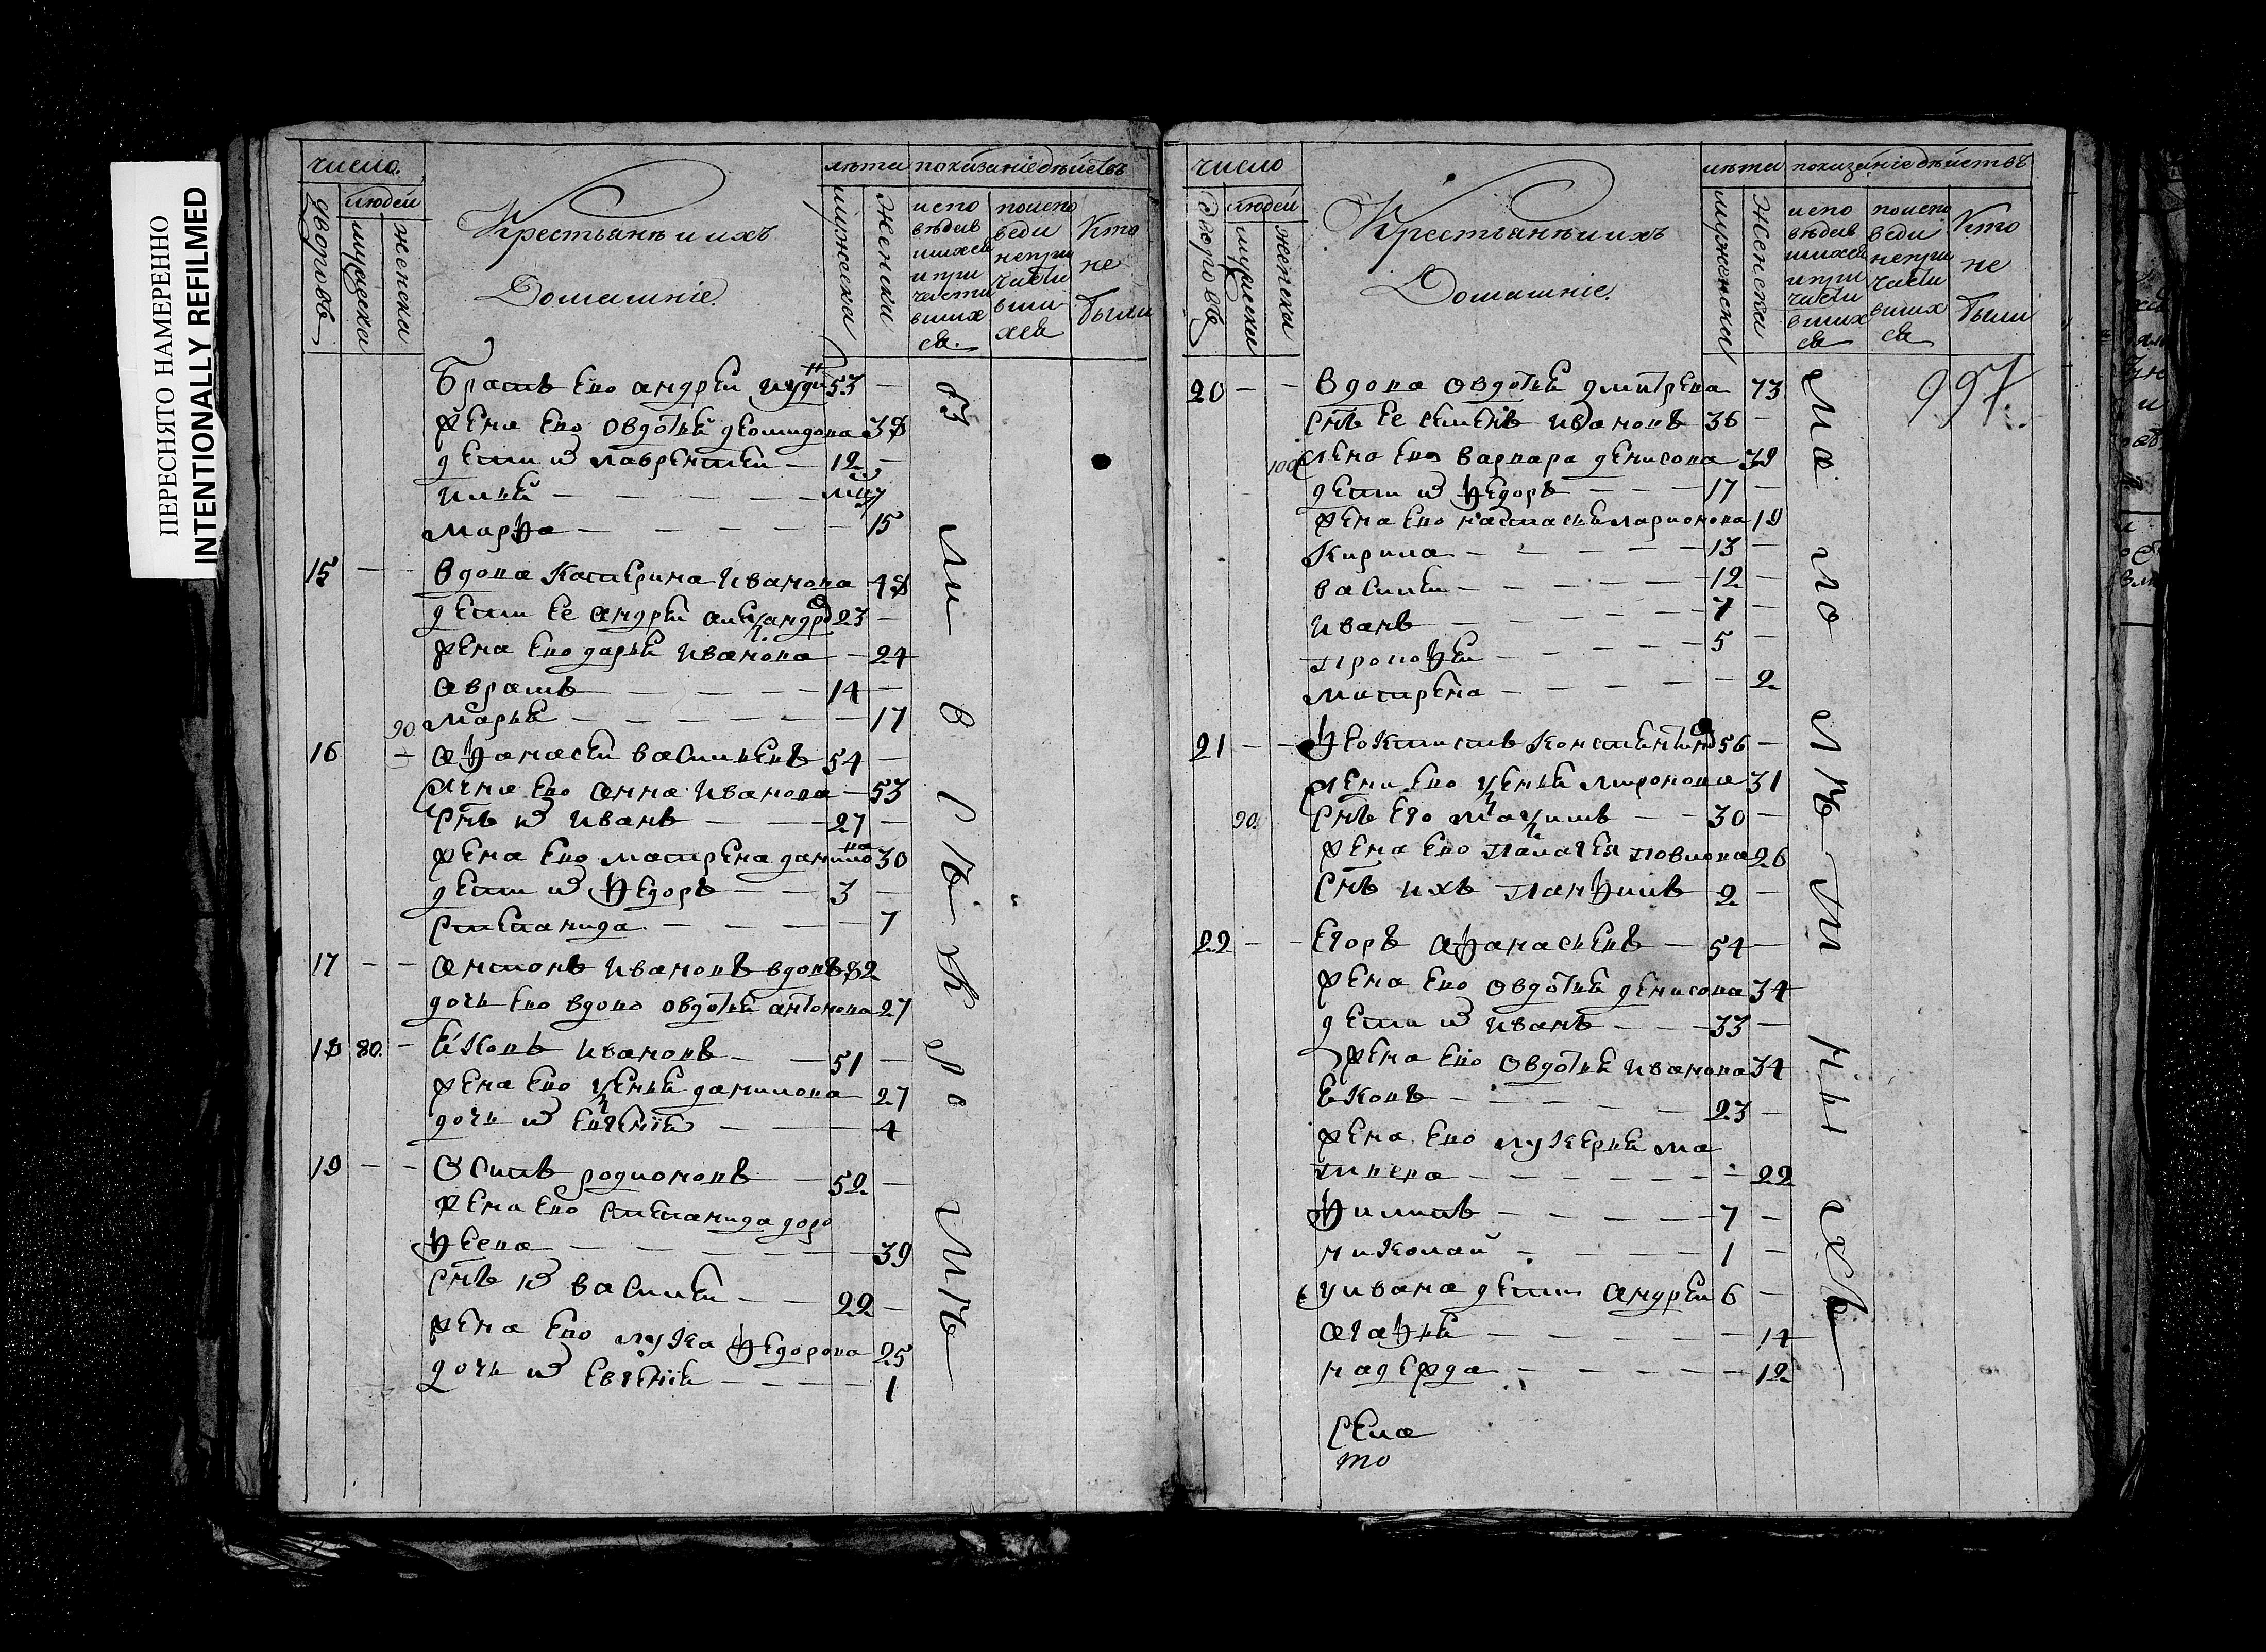 ПЕРЕСНЯТО НАМЕРЕННО
INTENTIONALLY REFILMED
число.
дворовъ
людей
мужеска
женска
Крестьянъ и ихъ
Домашніе.
лѣта
мужеска
женска
показаніе дѣйствъ
испо
вѣдав
шихся
и при
части
вших
ся.
поиспо
веди
непри
части
вши
хся
Кто
не
были
братъ ево андрей 53 —
жена ево овдотья 38
дети их лаврентей — 12 —
илья — — — — —
марѳа — — — — — 15
15 — — вдова катерина иванова 48
дети ее андрей 23 —
жена ево дарья иванова — 24
аврамъ — — — — 14 —
90 марья — — — — — 17
16 — аѳанасей васильевъ 54 —
жена ево анна иванова — 53
снъ их иванъ — — 27 —
жена ево матрена данилова 30
дети их ѳедоръ — — 3 —
степанида — — — — 7
17 — — антонъ ивановъ вдовъ 82
дочь ево вдова овдотья антонова 27
18 80. — ековъ ивановъ — — 51 —
жена ево ѯенья данилова 27
дочь их евгенія — — — 4
19 — — осипъ родионовъ — 52 —
жена ево степанида доро
ѳеева — — — — — 39
снъ их василей — — 22 —
жена ево лукя ѳедорова 25
дочь их евгенія — — — — 1
бы
ли
в
съ
ж
ро
лиъ
число
дворовъ
людей
мужеска
женска
Крестьянъ и ихъ
Домашніе.
лѣта
мужеска
женска
показаніе дѣйствъ
испо
вѣдав
шихся
и при
части
вших
ся
поиспо
веди
непри
части
вших
ся
Кто
не
были
997.
20 — — вдова овдотья дмитрева 73
снъ ее семенъ ивановъ 36 —
100 жена ево варвара денисова 39
дети их ѳедоръ — — — 17 —
жена ево настасья ларионова 19
кирила — — — — — 13 —
василей — — — — — 12 —
иванъ — — — — 7 —
прокоѳей — — — — 5 —
матрена — — — — — 2
21 — — ѳеоктистъ константиновъ 56 —
жена ево ѯенья миронова 31
90. снъ его маѯимъ — — 30 —
жена ево палагея павлова 26
снъ ихъ панѳилъ 2 —
22 — — егоръ аѳанасьевъ — 54 —
жена ево овдотья денисова 34
дети их иванъ — — — 33 —
жена ево овдотья иванова 34
ековъ — — — — — 23 —
жена ево лукерья ма
твеева — — — — — 22
ѳилипъ — — — — — 7 —
николай — — — — 1 —
у ивана дети андрей 6 —
агаѳья — — — — — 14
надежда — — — — — 12
села
то
ма
ло
лѣ
т
ны
хъ